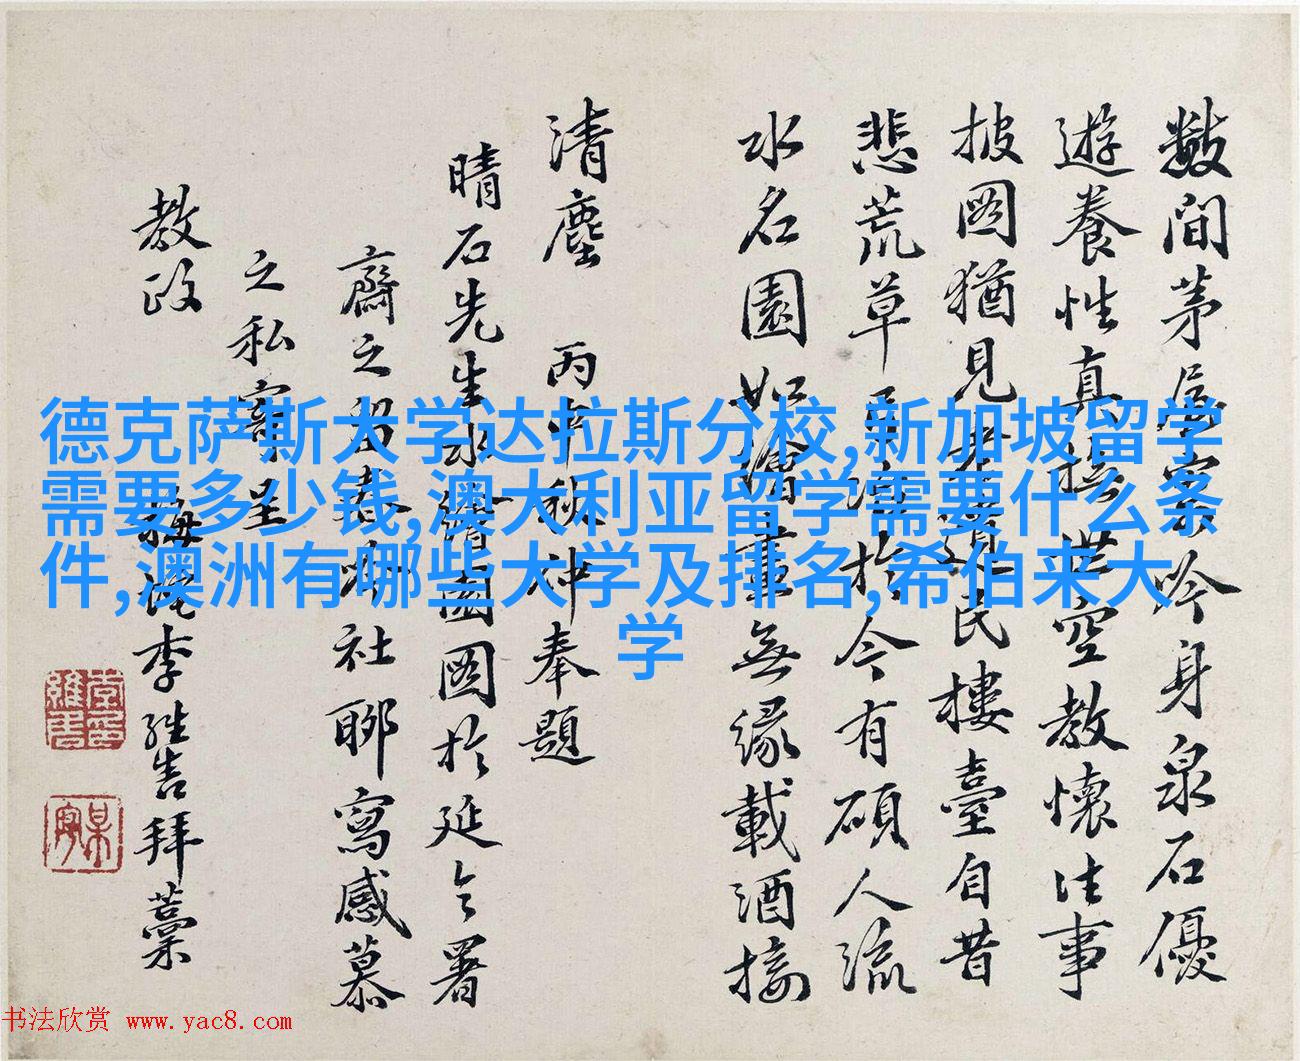 數間茅吟身泉石優
遊養性真世空教懷往事
披圖猶見遺民樓臺自昔
悲荒草於今有碩人流
水名園如繪畫無緣載酒接
清塵 丙申秋仲奉題
晴石先生園圖於延令署
齋之留春吟社聊寫感慕
之私呈
教政 李拜藁
德克萨斯大学达拉斯分校,新加坡留学
需要多少钱,澳大利亚留学需要什么条
件,澳洲有哪些大学及排名,希伯来大
学
书法欣赏 www.yac8.com